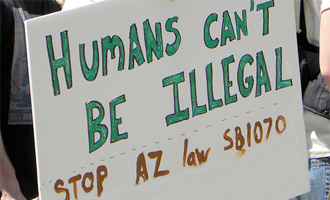 HUMANS CAN'T
BE ILLEGAL
STOP AZ law SB1070